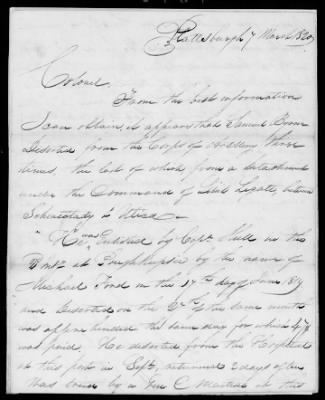 Plattsburgh 7 March 1820
Colonel
From the best information
I can obtain, it appears that Samuel
Deserted from the Corps of Artillery three
times, the last of which from a detachment
under the Command of Lieut Legate, between
Schenectady & Utica
"He was Enlisted by Capt Hull in the
at Poughkepsie by the name of
Michael Ford on the 17th day of June 1819
and deserted on the of the same month
was apprehended the same day for which
was paid. He deserted from the Hospital
at this post in Sept, returned 2 days after
was tried by a Gen C Martial in this